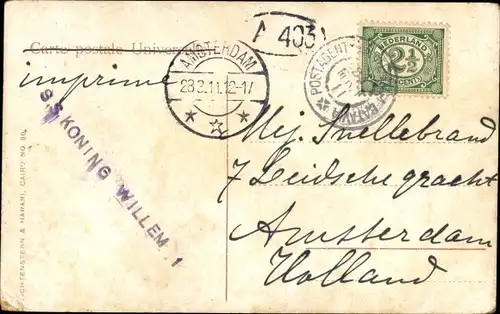 Carte postale Universelle
imprimé
A 403
AMSTERDAM
28 3.11.12-1/
POSTAGENT
BATAVIA
NEDERLAND
2½
CENT
S.S. KONING WILLEM 1
Mej. Snellebrand
7 Leidsche gracht
Amsterdam
Holland
LICHTENSTERN & HARARI, CAIRO NO. 80.